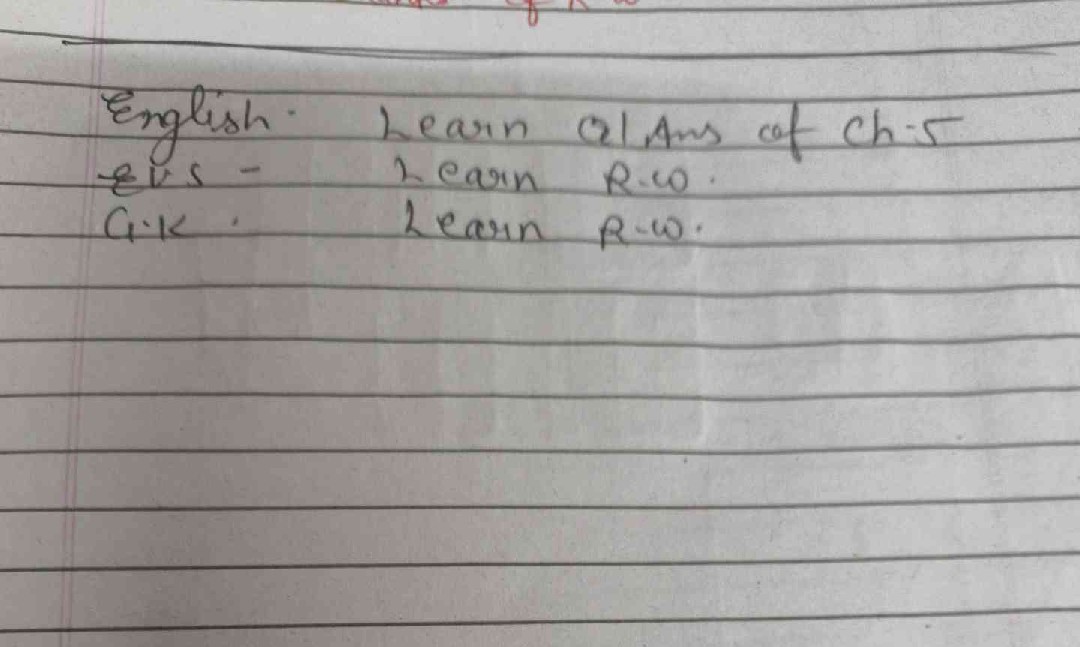 of R w
English. Learn Q/Ans of Ch-5
EVS - Learn R.w.
G.K. Learn R.w.